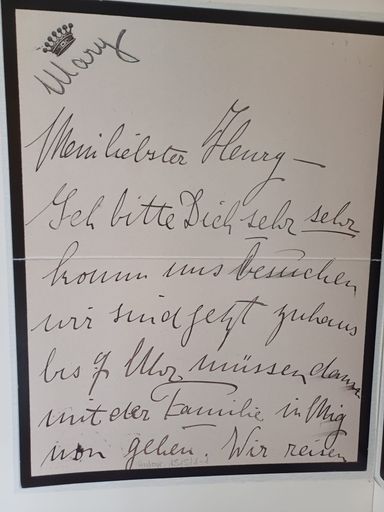 Mary
Mein liebster Henry —
Ich bitte Dich sehr sehr
komm uns besuchen
wir sind jetzt zuhaus
bis 9 müssen dann
mit der Familie in Mig
non gehen. Wir reisen